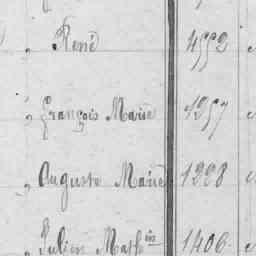 „ René 4552
„ François Marie 1257
„ Auguste Marie 1228
„ Julien Math^in 1406